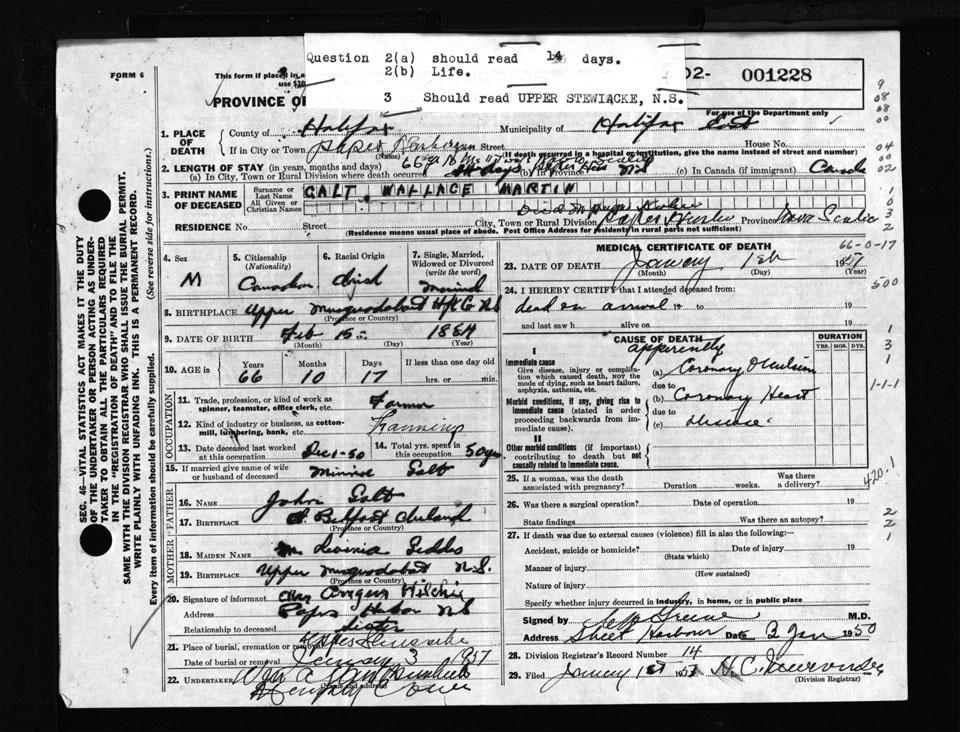 Question 2(a) should read 14 days.
2(b) Life.
3 Should read UPPER STEWIACKE, N.S.
FORM 6
This form if placed in a
PROVINCE OF
02- 001228
For use of the Department only
1. PLACE OF DEATH
County of Halifax Municipality of Halifax East
If in City or Town Street House No.
(Name) (If death occurred in a hospital or institution, give the name instead of street and number)
2. LENGTH OF STAY (in years, months and days)
(a) In City, Town or Rural Division where death occurred (b) In Province (c) In Canada (if immigrant) Canada
3. PRINT NAME OF DECEASED
Surname or Last Name
All Given or Christian Names
GALT WALLACE MARTIN
RESIDENCE No. Street City, Town or Rural Division Province Nova Scotia
(Residence means usual place of abode. Post Office Address for rural parts not sufficient)
4. Sex M
5. Citizenship (Nationality) Canadian
6. Racial Origin Irish
7. Single, Married, Widowed or Divorced (write the word) Married
8. BIRTHPLACE Upper Musquodoboit Hfx Co NS
(Province or Country)
9. DATE OF BIRTH Feb 15 1884
(Month) (Day) (Year)
10. AGE in Years 66 Months 10 Days 17 If less than one day old hrs. or min.
OCCUPATION
11. Trade, profession or kind of work as spinner, teamster, office clerk, etc. Farmer
12. Kind of industry or business, as cotton-mill, lumbering, bank, etc. Farming
13. Date deceased last worked at this occupation Dec 1-50
14. Total yrs. spent in this occupation 50 yrs
15. If married give name of wife or husband of deceased Galt
FATHER
16. Name John Galt
17. Birthplace Belfast Ireland
(Province or Country)
MOTHER
18. Maiden Name Levinia Geddes
19. Birthplace Upper Musquodoboit N.S.
(Province or Country)
20. Signature of informant Mrs Angus Hilchie
Address NS
Relationship to deceased Sister
21. Place of burial, cremation or removal
Date of burial or removal January 3 1951
22. UNDERTAKER
(Name and address)
SEC. 46—VITAL STATISTICS ACT MAKES IT THE DUTY
OF THE UNDERTAKER OR PERSON ACTING AS UNDER-
TAKER TO OBTAIN ALL THE PARTICULARS REQUIRED
IN THE "REGISTRATION OF DEATH" AND TO FILE THE
SAME WITH THE DIVISION REGISTRAR WHO SHALL ISSUE THE BURIAL PERMIT.
WRITE PLAINLY WITH UNFADING INK. THIS IS A PERMANENT RECORD.
Every item of information should be carefully supplied. (See reverse side for instructions.)
MEDICAL CERTIFICATE OF DEATH
66-0-17
23. DATE OF DEATH January 1st 1951
(Month) (Day) (Year)
24. I HEREBY CERTIFY that I attended deceased from:
dead on arrival 19 to 19
and last saw h alive on 19
500
CAUSE OF DEATH DURATION
YRS. MOS. DYS.
apparently
I
Immediate cause
Give disease, injury or complication which caused death, NOT the mode of dying, such as heart failure, asphyxia, asthenia, etc.
(a) Coronary Occlusion
due to
Morbid conditions, if any, giving rise to immediate cause (stated in order proceeding backwards from immediate cause).
(b) Coronary Heart
due to
(c) disease
II
Other morbid conditions (if important) contributing to death but not causally related to immediate cause.
1-1-1
420.1
25. If a woman, was the death associated with pregnancy? Duration weeks. Was there a delivery?
26. Was there a surgical operation? Date of operation 19
State findings Was there an autopsy?
27. If death was due to external causes (violence) fill in also the following:—
Accident, suicide or homicide? Date of injury 19
(State which)
Manner of injury
(How sustained)
Nature of injury
Specify whether injury occurred in industry, in home, or in public place
Signed by M.D.
Address Sheet Harbour Date 2 Jan 1950
28. Division Registrar's Record Number 14
29. Filed January 1st
(Division Registrar)